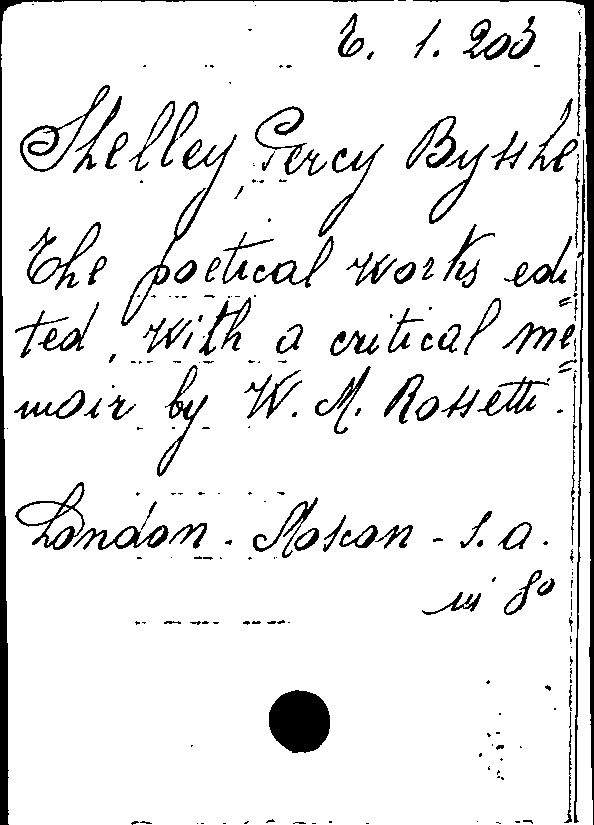 6. 1. 203
Shelley, Percy Bysshe
The poetical works edi=
ted, with a critical me=
moir by W. M. Rossetti.
London - Moxon - s. a.
in 8º